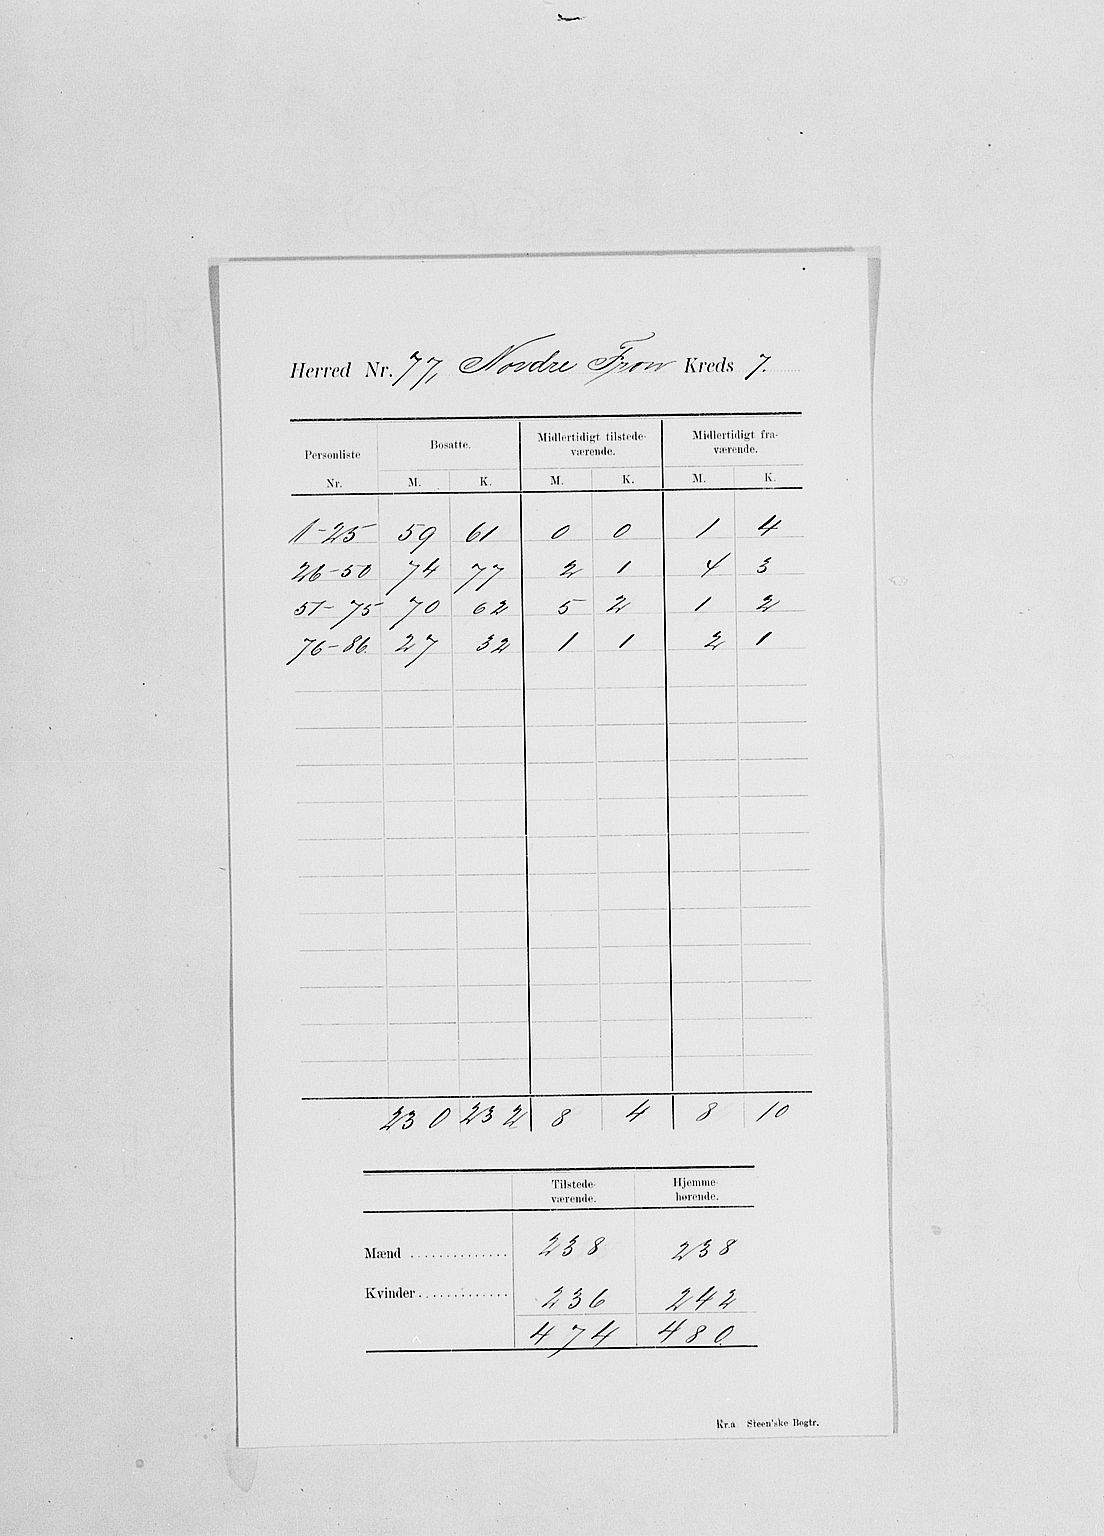 Herred Nr. 77, Nordre Fron Kreds 7.
Personliste Nr. Bosatte. Midlertidigt tilstede-værende. Midlertidigt fra-værende.
M. K. M. K. M. K.
1-25 59 61 0 0 1 4
26-50 74 77 2 1 4 3
51-75 70 62 5 2 1 2
76-86. 27 32 1 1 2 1
230 232 8 4 8 10
Tilstede-værende. Hjemme-hørende.
Mænd .............. 238 238
Kvinder............. 236 242
474 480.
Kr.a Steen'ske Bogtr.